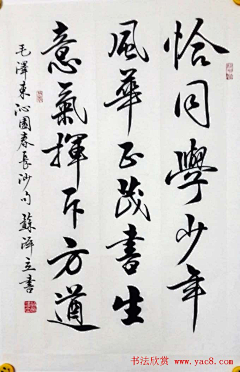 恰同學少年
風華正茂書生
意氣揮斥方遒
毛澤東沁園春長沙句 蘇澤立書
书法欣赏
www.yac8.com